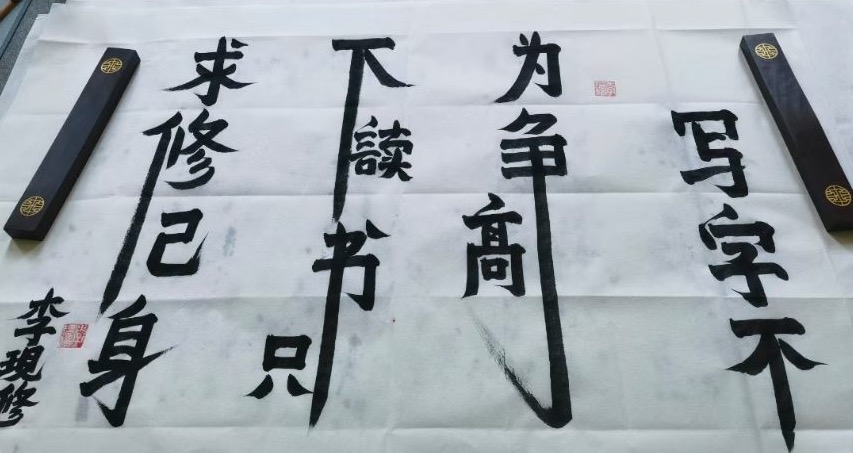 写字不
为争高
下读书只
求修己身
李現修